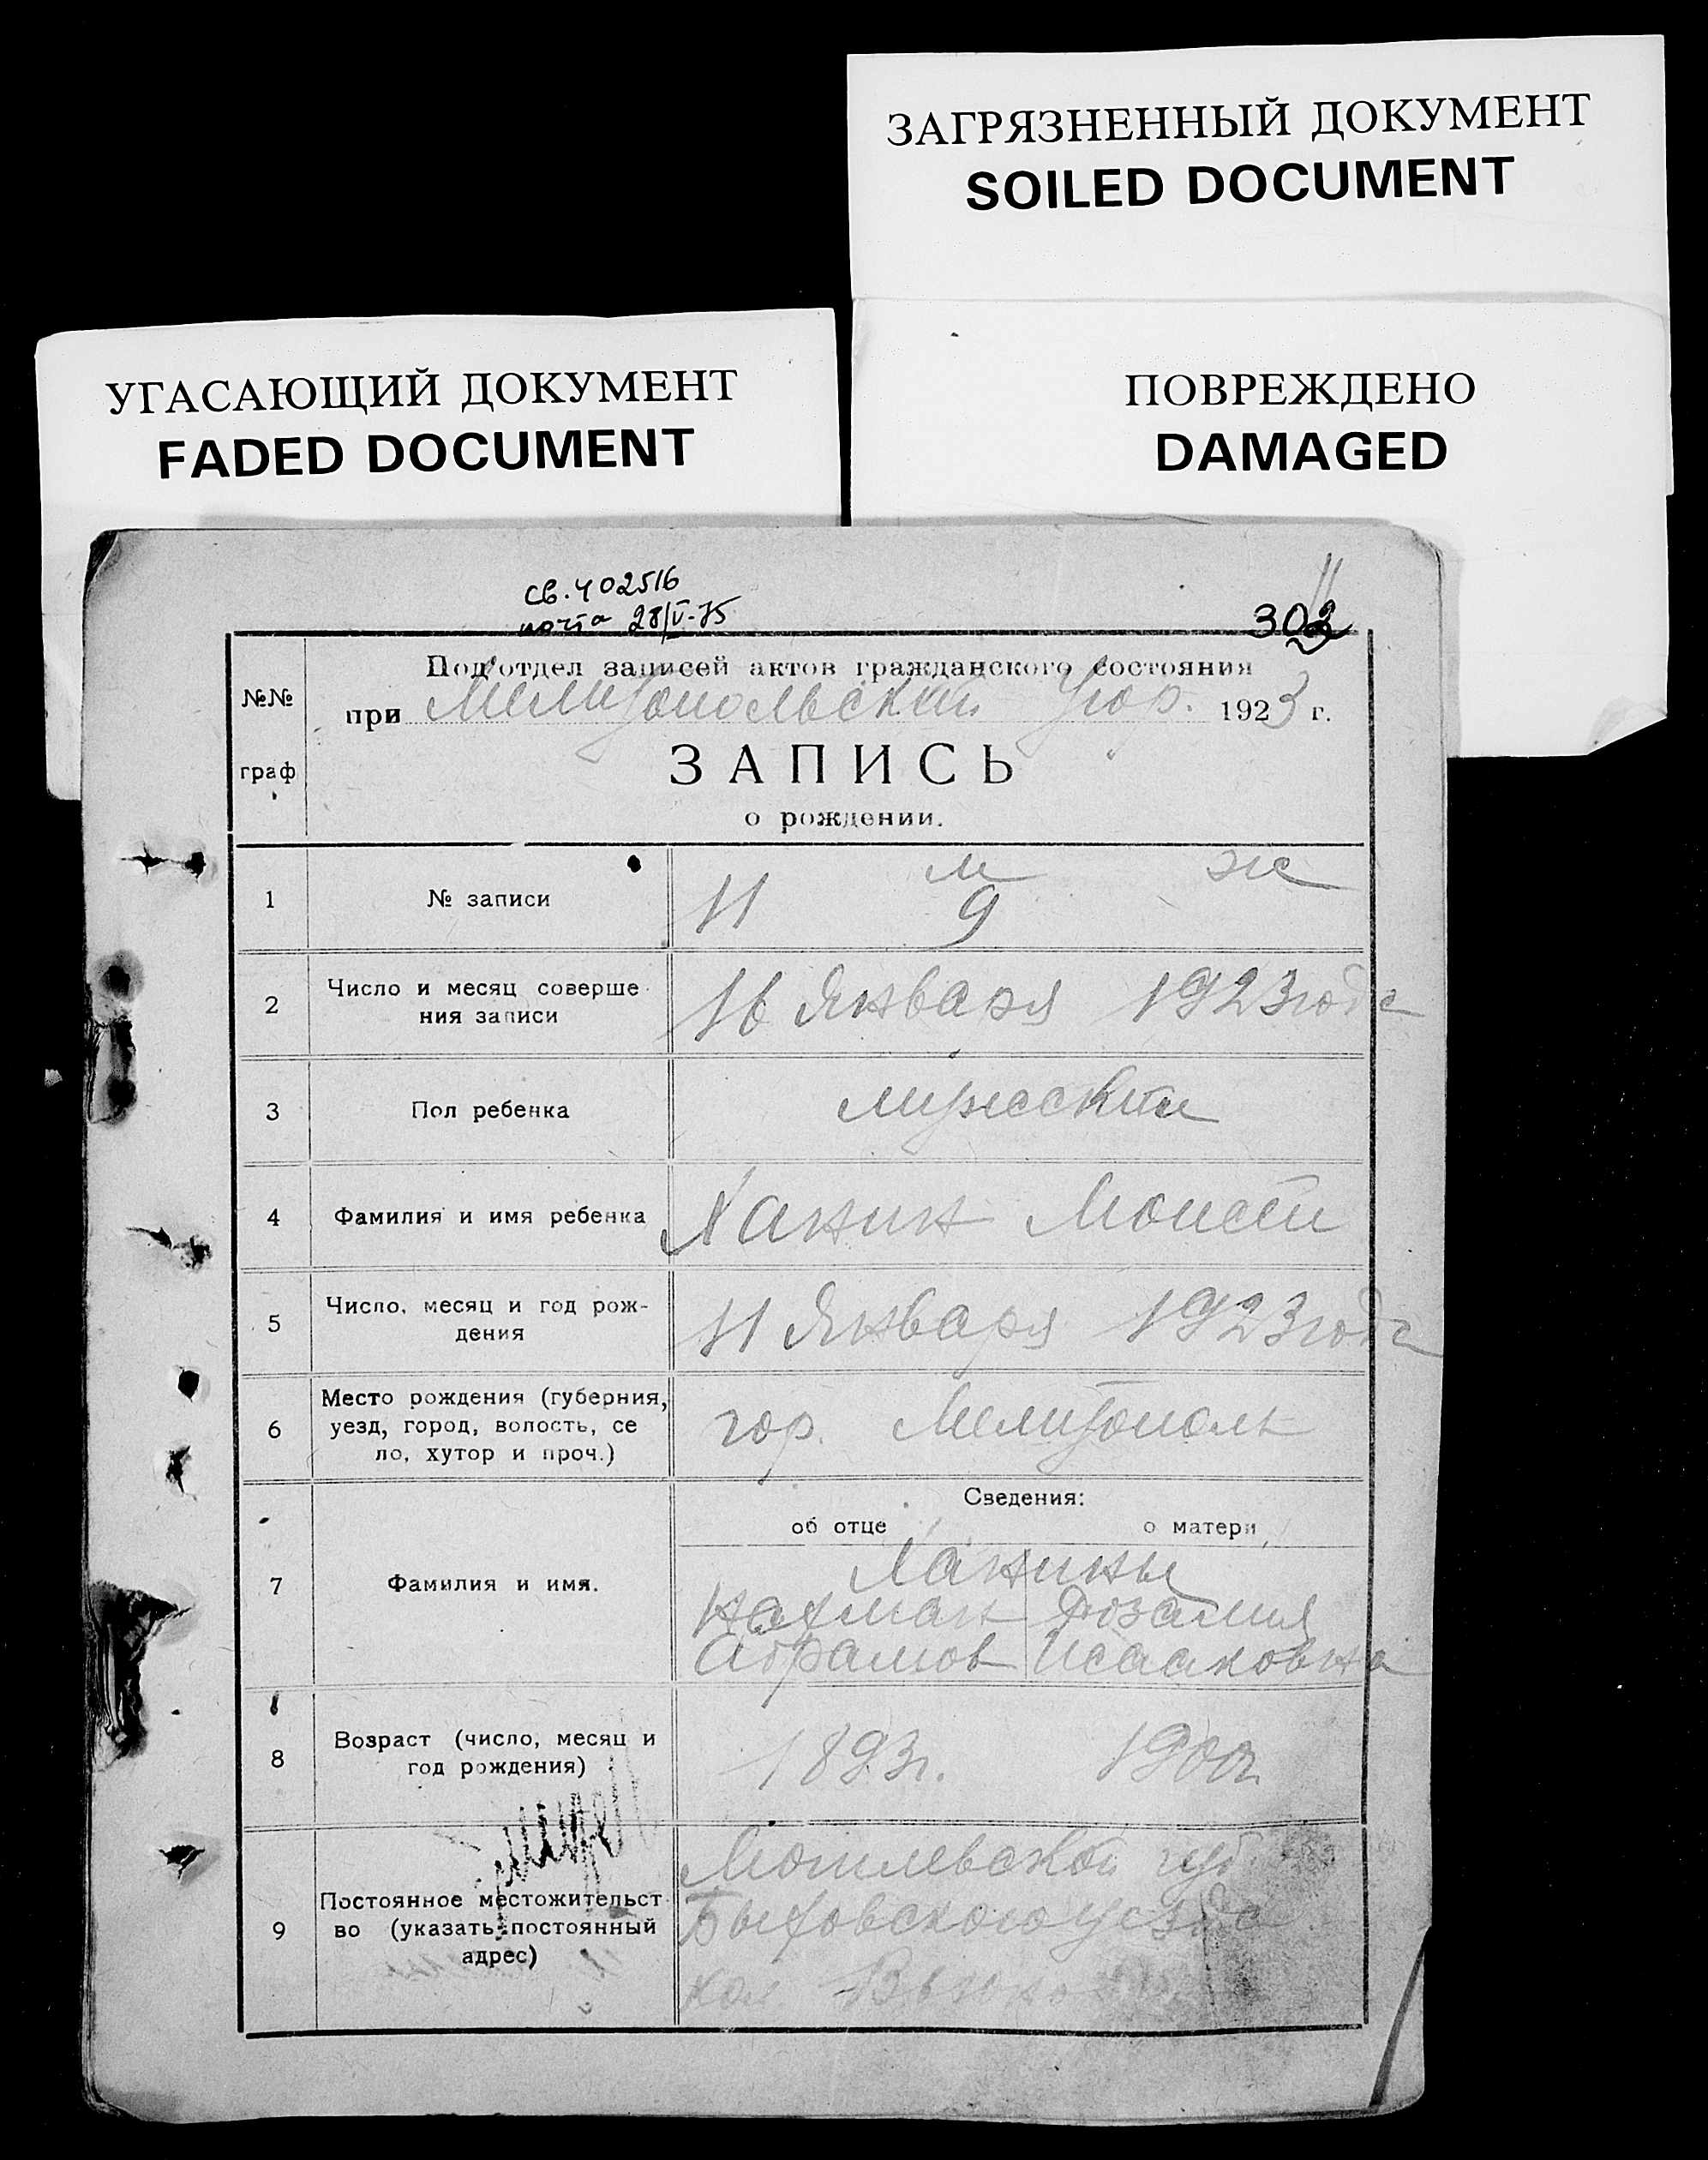 ЗАГРЯЗНЕННЫЙ ДОКУМЕНТ
SOILED DOCUMENT
УГАСАЮЩИЙ ДОКУМЕНТ
FADED DOCUMENT
ПОВРЕЖДЕНО
DAMAGED
св. 402516
почта 28/V-75
302
№№
граф
Под'отдел записей актов гражданского состояния
при Мелитопольский 1923 г.
ЗАПИСЬ
о рождении.
м ж
1 № записи 11 9
2 Число и месяц соверше
ния записи
16 Января 1923 года
3 Пол ребенка мужской
4 Фамилия и имя ребенка Ханин Моисей
5 Число, месяц и год рож-
дения
11 Января 1923 года
6 Место рождения (губерния,
уезд, город, волость, се
ло, хутор и проч.)
гор. Мелитополь
Сведения:
об отце о матери
7 Фамилия и имя.
Ханины
Нахман Розалия
Абрамов Исааковна
8 Возраст (число, месяц и
год рождения)
1893г. 1900г.
9 Постоянное местожительст
во (указать постоянный
адрес)
Могилевской губ
Быховского уезда
кол